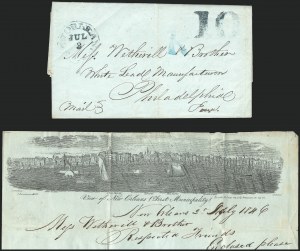 JUL
10
Messrs Wetherill & Brother
White Lead Manufacturers
Philadelphia
Penn
Mail
View of New Orleans (First Municipality)
New Orleans 2d July 1846
Messrs Wetherill & Brother
Respected Friends
Enclosed please